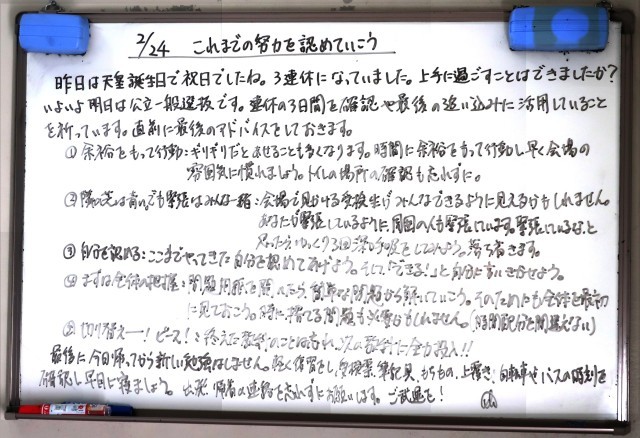 2/24 これまでの努力を認めていこう
昨日は天皇誕生日で祝日でしたね。3連休になっていました。上手に過ごすことはできましたか?
いよいよ明日は公立一般選抜です。連休の3日間を確認や最後の追い込みに活用していること
を祈っています。直前に最後のアドバイスをしておきます。
①余裕をもって行動:ギリギリだとあせることも多くなります。時間に余裕をもって行動し早く会場の
雰囲気に慣れましょう。トイレの場所の確認も忘れずに。
②隣の芝は青い。でも緊張はみんな一緒:会場で見かける受検生がみんなできるように見えるかもしれません。
あなたが緊張しているように、周囲の人も緊張しています。緊張しているな、と
思ったらゆっくり3回深呼吸をしてみよう。落ち着きます。
③自分を認める:ここまでやってきた自分を認めてあげよう。そして「できる!」と自分に言いきかせよう。
④まずは全体の把握:問題用紙を開いたら、簡単な問題から解いていこう。そのためにも全体を最初
に見ておこう。時に捨てる問題も必要かもしれません。(時間配分を間違えない)
⑤切り替えー!ピース!:終えた教科のことは忘れ、次の教科に全力投入!!
最後に今日帰ってから新しい勉強はしません。軽く復習をし、受検票、筆記具、もちもの、上履き、自転車やバスの時刻を
確認し早目に寝ましょう。出発、帰着の連絡を忘れずにお願いします。ご武運を!